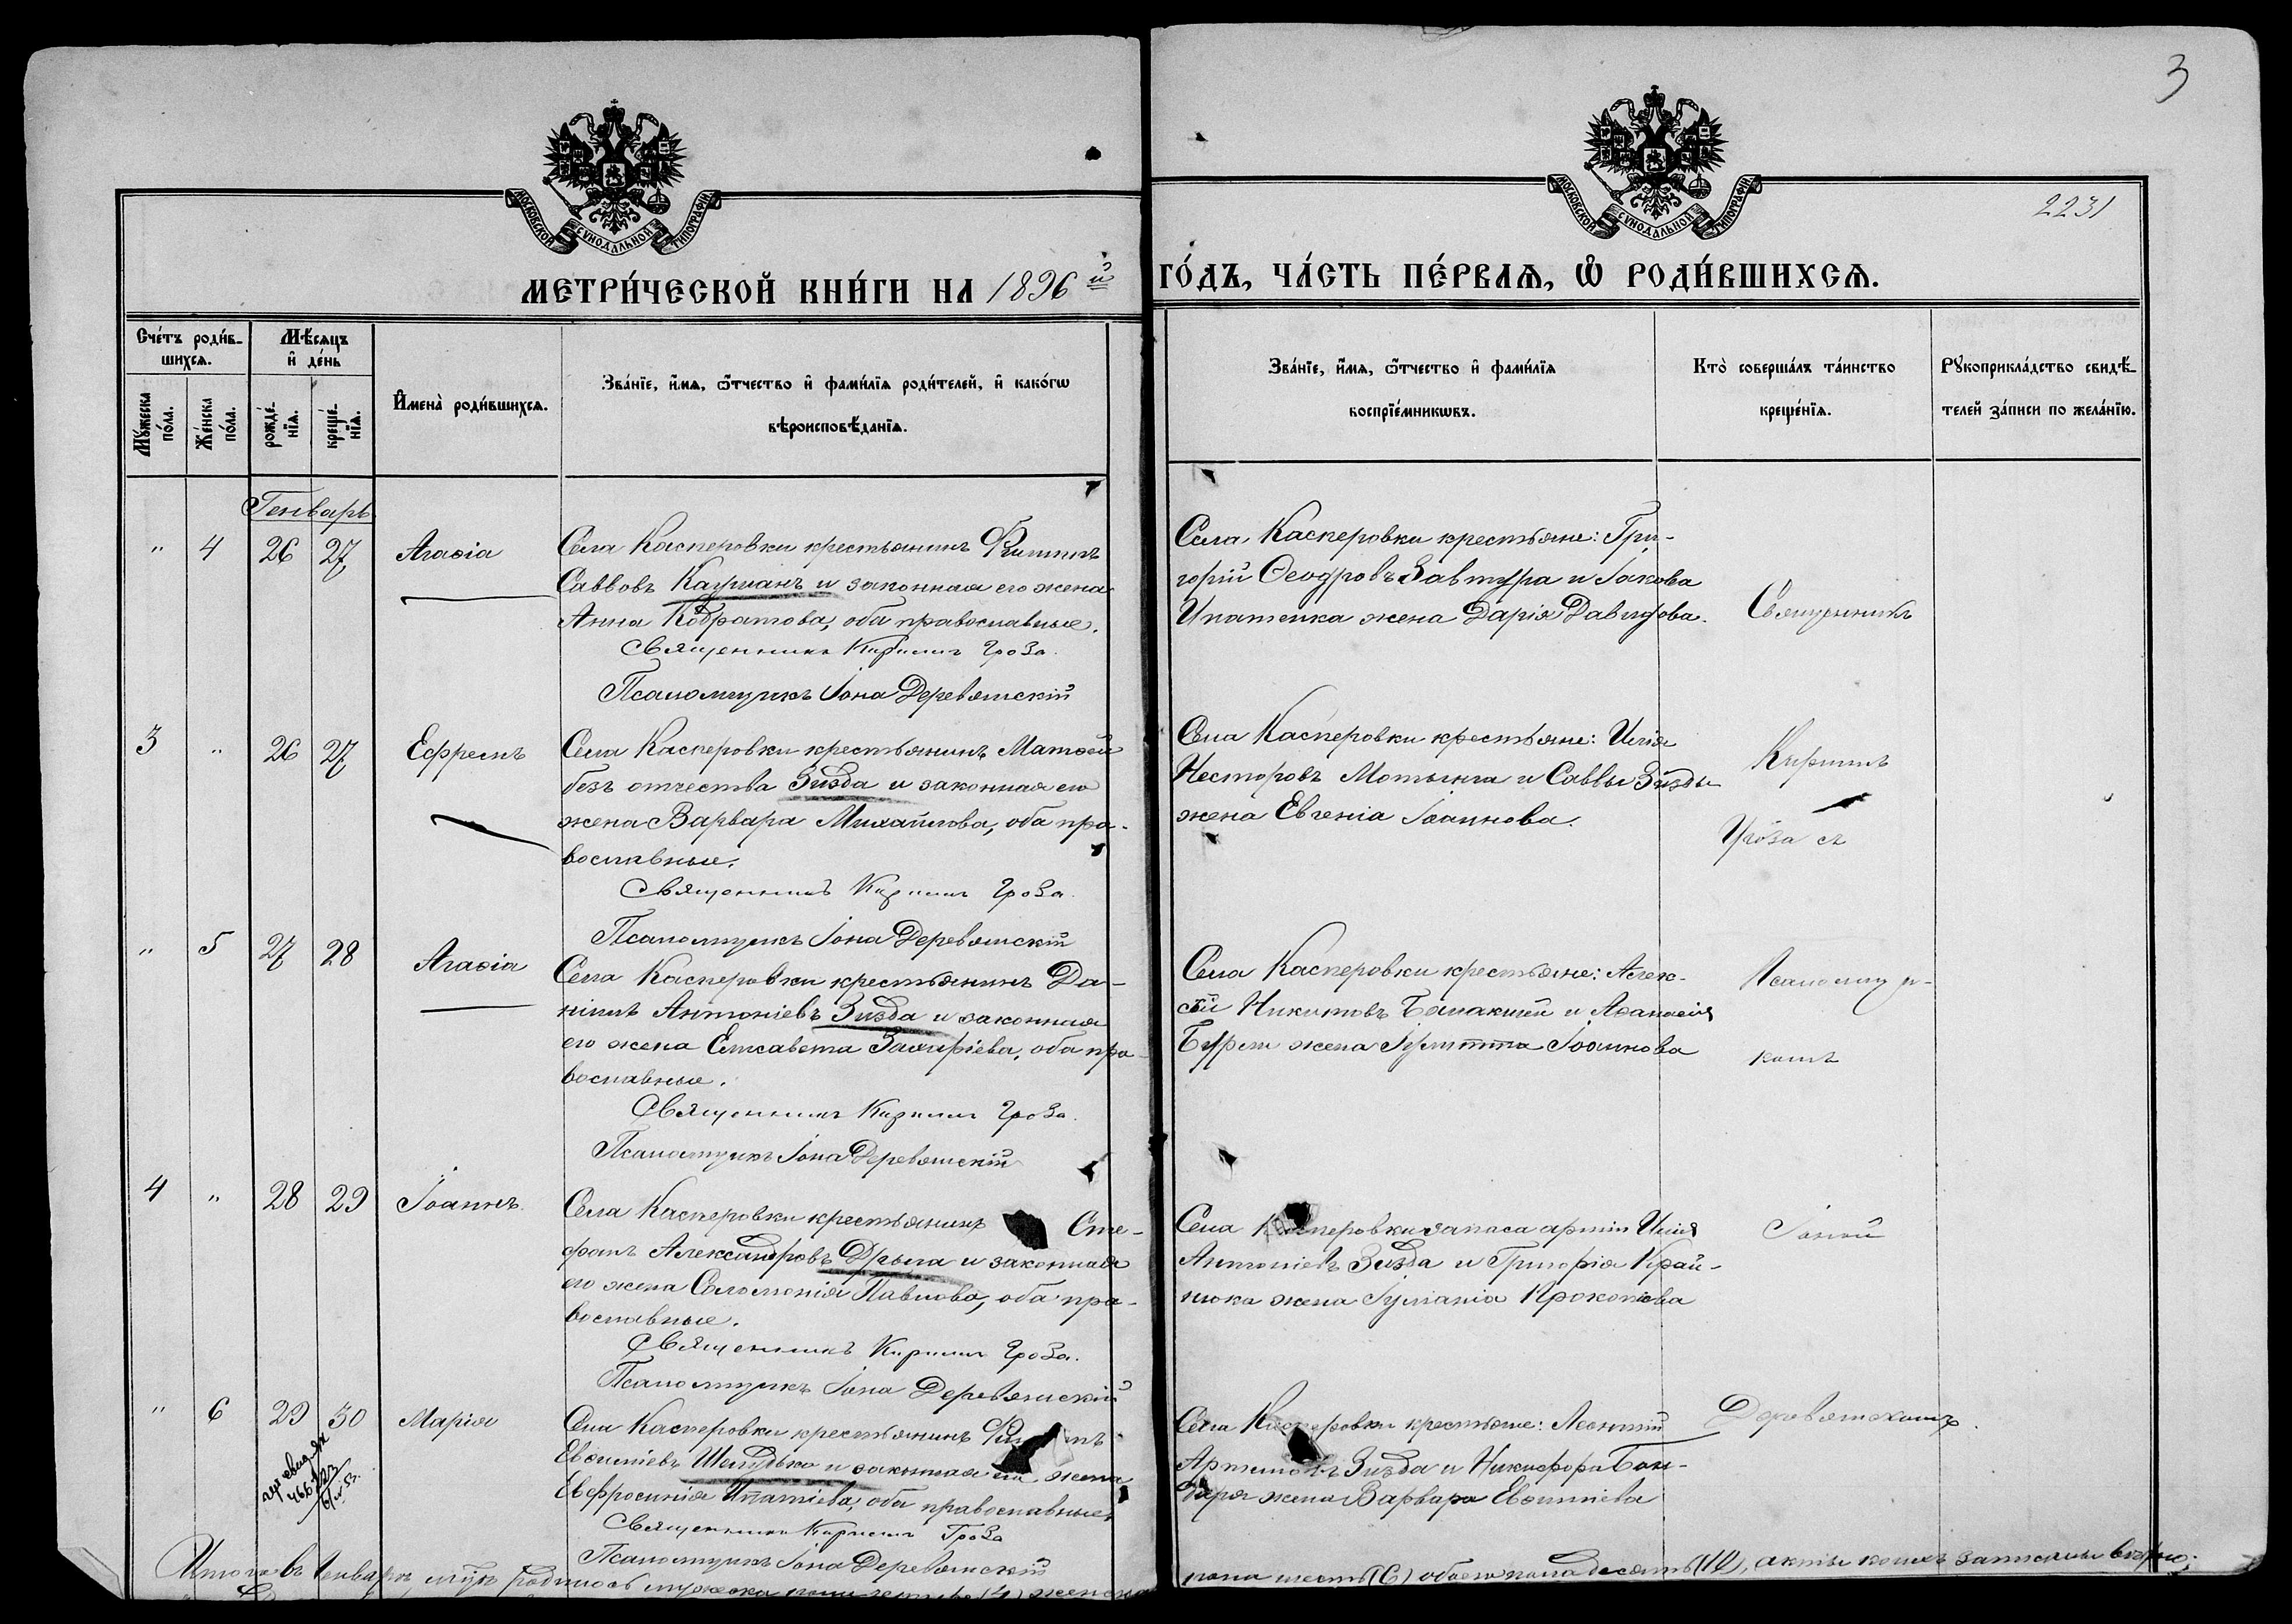 3
МОСКОВСКОЙ СѴНОДАЛЬНОЙ ТИПОГРАФІИ
МОСКОВСКОЙ СѴНОДАЛЬНОЙ ТИПОГРАФІИ
2231
МЕТРИ́ЧЕСКОЙ КНИ́ГИ НА 1896й ГО́ДЪ, ЧА́СТЬ ПЕ́РВАѦ, Ѡ҆ РОДИ́ВШИХСѦ.
Сче́тъ роди́в-
шихсѧ.
Мѣ́сѧцъ
и҆ де́нь
Мꙋ́жеска
по́ла.
Же́нска
по́ла.
рожде́-
нїѧ.
креще́-
нїѧ.
И҆мена̀ роди́вшихсѧ.
Зва́нїе, и҆́мѧ, ѻ҆́тчество и҆ фами́лїѧ роди́телей, и҆ како́гѡ
вѣроисповѣ́данїѧ.
Зва́нїе, и҆́мѧ, ѻ҆́тчество и҆ фами́лїѧ
воспрїе́мникѡвъ.
Кто̀ соверша́лъ та́инство
креще́нїѧ.
Рꙋкоприкла́дство свидѣ́-
телей за́писи по жела́нїю.
Генварь
" 4 26 27 Агаѳіа
Села Касперовки крестьянинъ Филиппъ
Саввовъ Кауманъ и законная его жена
Анна Кодратова, оба православные.
Священникъ Кириллъ Гроза.
Псаломщикъ Іона Деревянскій
Села Касперовки крестьяне: Гри-
горій Ѳеодоровъ Завтура и Іакова
Ипатенка жена Дарія Давидова.
Священникъ
3 " 26 27 Ефремъ
Села Касперовки крестьянинъ Матѳей
безъ отчества Зизда и законная его
жена Варвара Михайлова, оба пра-
вославные.
Священникъ Кириллъ Гроза.
Псаломщикъ Іона Деревянскій
Села Касперовки крестьяне: Илія
Несторовъ Мотынга и Саввы Зизды
жена Евгенія Іоаннова.
Кириллъ
Гроза съ
" 5 27 28 Агаѳіа
Села Касперовки крестьянинъ Да-
ніилъ Антоніевъ Зизда и законная
его жена Елисавета Захаріева, оба пра-
вославные.
Священникъ Кириллъ Гроза.
Псаломщикъ Іона Деревянскій
Села Касперовки крестьяне: Алек-
сій Никитовъ и Аѳанасія
жена Іулитта Іоаннова
Псаломщи-
комъ
4 " 28 29 Іоаннъ
Села Касперовки крестьянинъ Сте-
фанъ Александровъ Дрыга и законная
его жена Соломонія Павлова, оба пра-
вославные.
Священникъ Кириллъ Гроза.
Псаломщикъ Іона Деревянскій
Села Касперовки запаса арміи Илія
Антоніевъ Зизда и Григорія Край-
нюка жена Іуліанія Прокопіева
Іоною
" 6 29 30 Марія
Села Касперовки крестьянинъ
Евѳиміевъ и законная его жена
Евфросинія Ипатіева, оба православные.
Священникъ Кириллъ Гроза
Псаломщикъ Іона Деревянскій
Села Касперовки крестьяне: Леонтій
Артемовъ Зизда и Никифора Бон-
даря жена Варвара Евѳиміева
Деревянскимъ.
Итого въ Генварѣ родилось мужеска пола четыре (4) женска
пола шесть (6) обоего пола десять (10), акты коихъ записаны вѣрно: